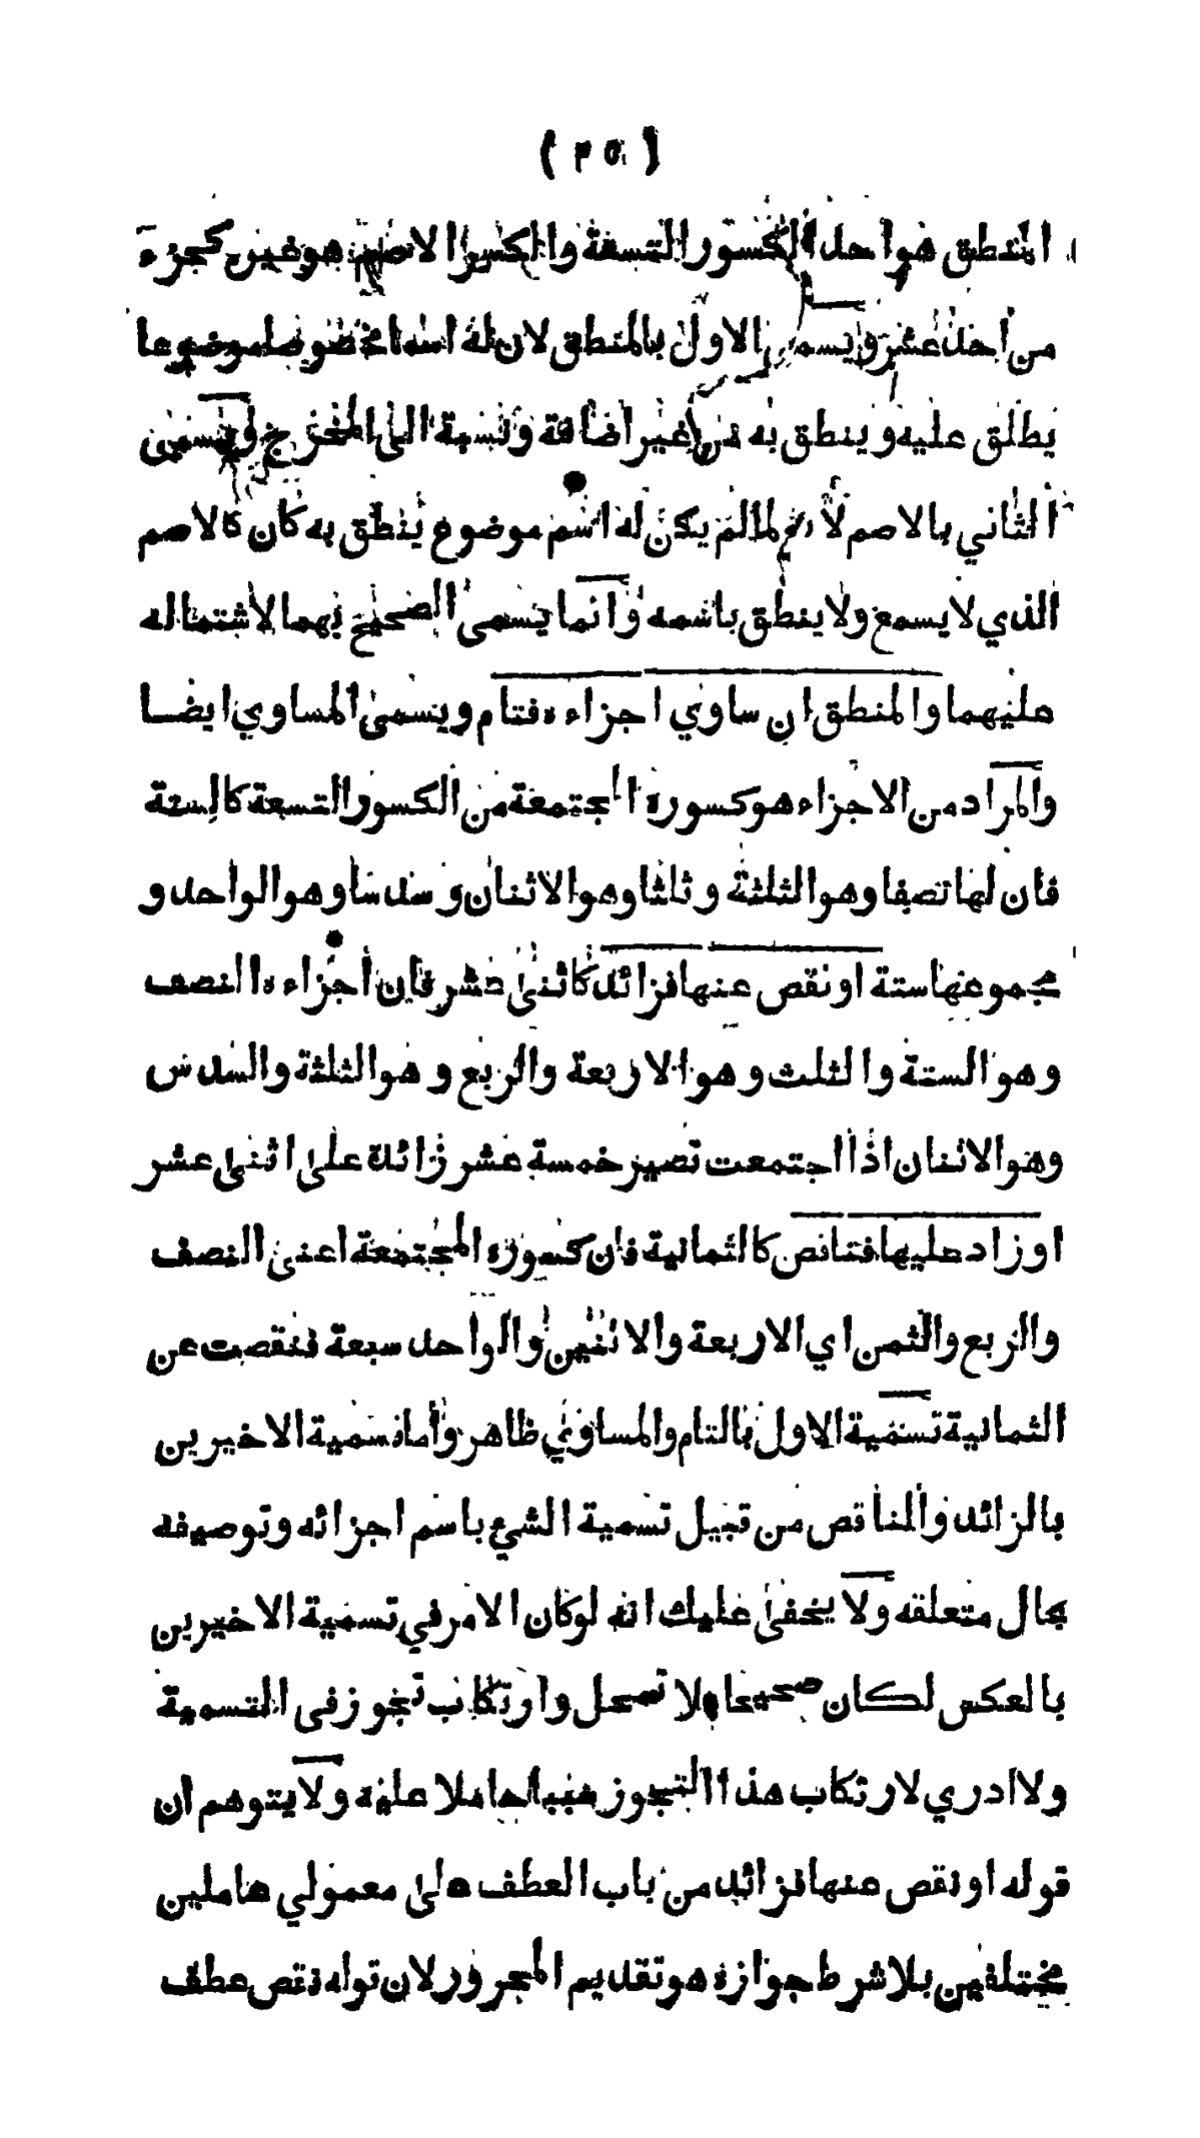 ( ٢٥ )
المنطق هو احد الكسور التسعة والكسر الاصم هو غيره كجزء
من احد عشر ويسمى الاول بالمنطق لان له اسما مخصوصا موضوعا
يطلق عليه وينطق به من غير اضافة ونسبة الى المخرج ويسمى
الثاني بالاصم لانه لما لم يكن له اسم موضوع ينطق به كان كالاصم
الذي لا يسمع ولا ينطق باسمه وانما يسمى الصحيح بهما لاشتماله
عليهما والمنطق ان ساوي اجزاءه فتام ويسمى المساوي ايضا
والمراد من الاجزاء هو كسوره المجتمعة من الكسور التسعة كالستة
فان لها نصفا وهو الثلثة وثلثا وهو الاثنان وسدسا وهو الواحد و
مجموعها ستة او نقص عنها فزائد كاثنى عشر فان اجزاءه النصف
وهو الستة والثلث وهو الاربعة والربع وهو الثلثة والسدس
وهو الاثنان اذا اجتمعت تصير خمسة عشر زائدة على اثنى عشر
او زاد عليها فناقص كالثمانية فان كسوره المجتمعة اعنى النصف
والربع والثمن اي الاربعة والاثنين والواحد سبعة فنقصت عن
الثمانية تسمية الاول بالتام والمساوي ظاهر واما تسمية الاخيرين
بالزائد والناقص من قبيل تسمية الشيء باسم اجزائه وتوصيفه
بحال متعلقه ولا يخفى عليك انه لو كان الامر في تسمية الاخيرين
بالعكس لكان صحيحا بلا تمحل وارتكاب تجوز في التسمية
ولا ادري لارتكاب هذا التجوز سببا حاملا عليه ولا يتوهم ان
قوله او نقص عنها فزائد من باب العطف على معمولي عاملين
مختلفين بلا شرط جوازه هو تقديم المجرور لان قوله نقص عطف